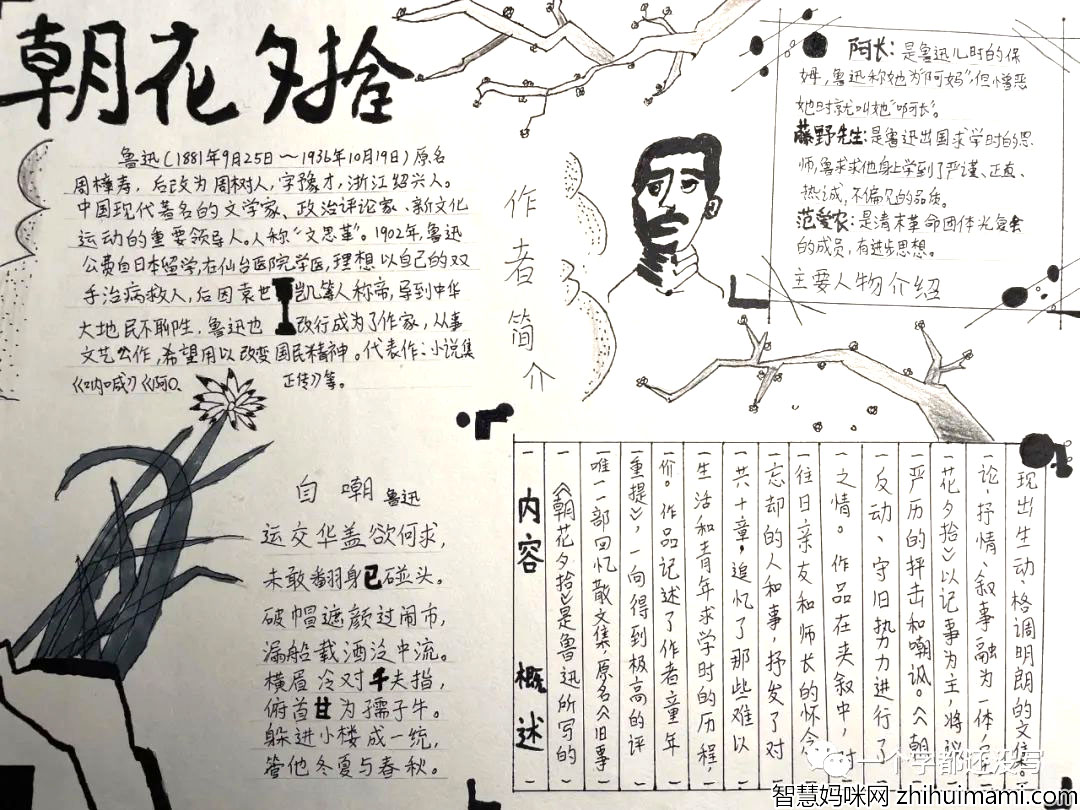 朝花夕拾
鲁迅(1881年9月25日~1936年10月19日)原名
周樟寿，后改为周树人，字豫才，浙江绍兴人。
中国现代著名的文学家、政治评论家、新文化
运动的重要领导人。人称“文思革”。1902年，鲁迅
公费自日本留学，在仙台医院学医，理想以自己的双
手治病救人，后因袁世凯等人称帝，导到中华
大地民不聊生，鲁迅也改行成为了作家，从事
文艺公作，希望用以改变国民精神。代表作：小说集
《呐喊》《阿Q正传》等。
作者简介
阿长：是鲁迅儿时的保
姆，鲁迅称她为“阿妈”但憎恶
她时就叫她“阿长”。
藤野先生：是鲁迅出国求学时的恩
师，鲁求求他身上学到了严谨、正直、
热诚，不偏见的品质。
范爱农：是清末革命团体光复会
的成员，有进步思想。
主要人物介绍
自嘲 鲁迅
运交华盖欲何求，
未敢翻身已碰头。
破帽遮颜过闹市，
漏船载酒泛中流。
横眉冷对千夫指，
俯首甘为孺子牛。
躲进小楼成一统，
管他冬夏与春秋。
内容概述
《朝花夕拾》是鲁迅所写的
唯一一部回忆散文集，原名《旧事
重提》，一向得到极高的评
价。作品记述了作者童年
生活和青年求学时的历程，
共十章，追忆了那些难以
忘却的人和事，抒发了对
往日亲友和师长的怀念
之情。作品在夹叙中，对
反动、守旧势力进行了
严历的抨击和嘲讽。《朝
花夕拾》以记事为主，将议
论，抒情、叙事融为一体，呈
现出生动、格调明朗的文集。
一个字都还没写
智慧妈咪网 zhihuimami.com